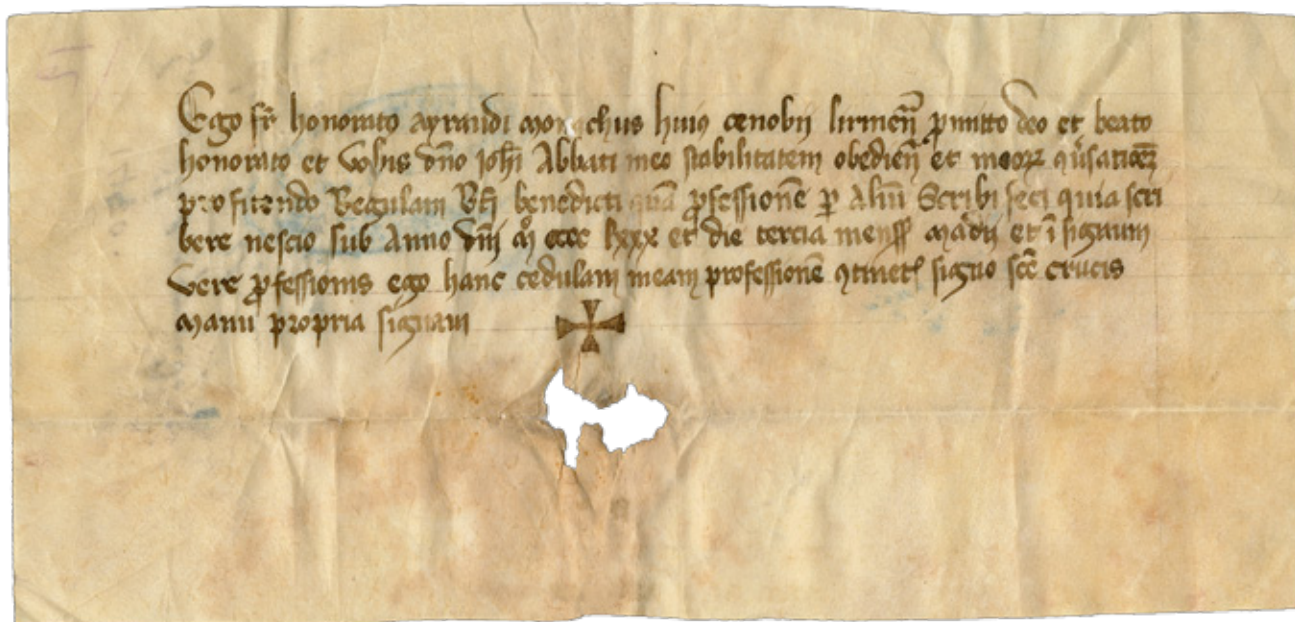 Ego fr̄ honorato ayraudi monachus huiꝰ cenobii lirineñ ꝓmitto deo et beato
honorato et vobis dn̄o Joh̄i Abbati meo stabilitatem obedieñ et moorꝝ
profitendo Regulam Bt̄i benedicti quā ꝓfessionē ꝑ Aliū Scribi feci quia scri
bere nescio sub Anno dn̄i mº cccc lxxx et die tercia menss̄ madii et ī signum
vere ꝓfessionis ego hanc cedulam meam professionē ꝯtinetē signo scē crucis
manu propria signaui